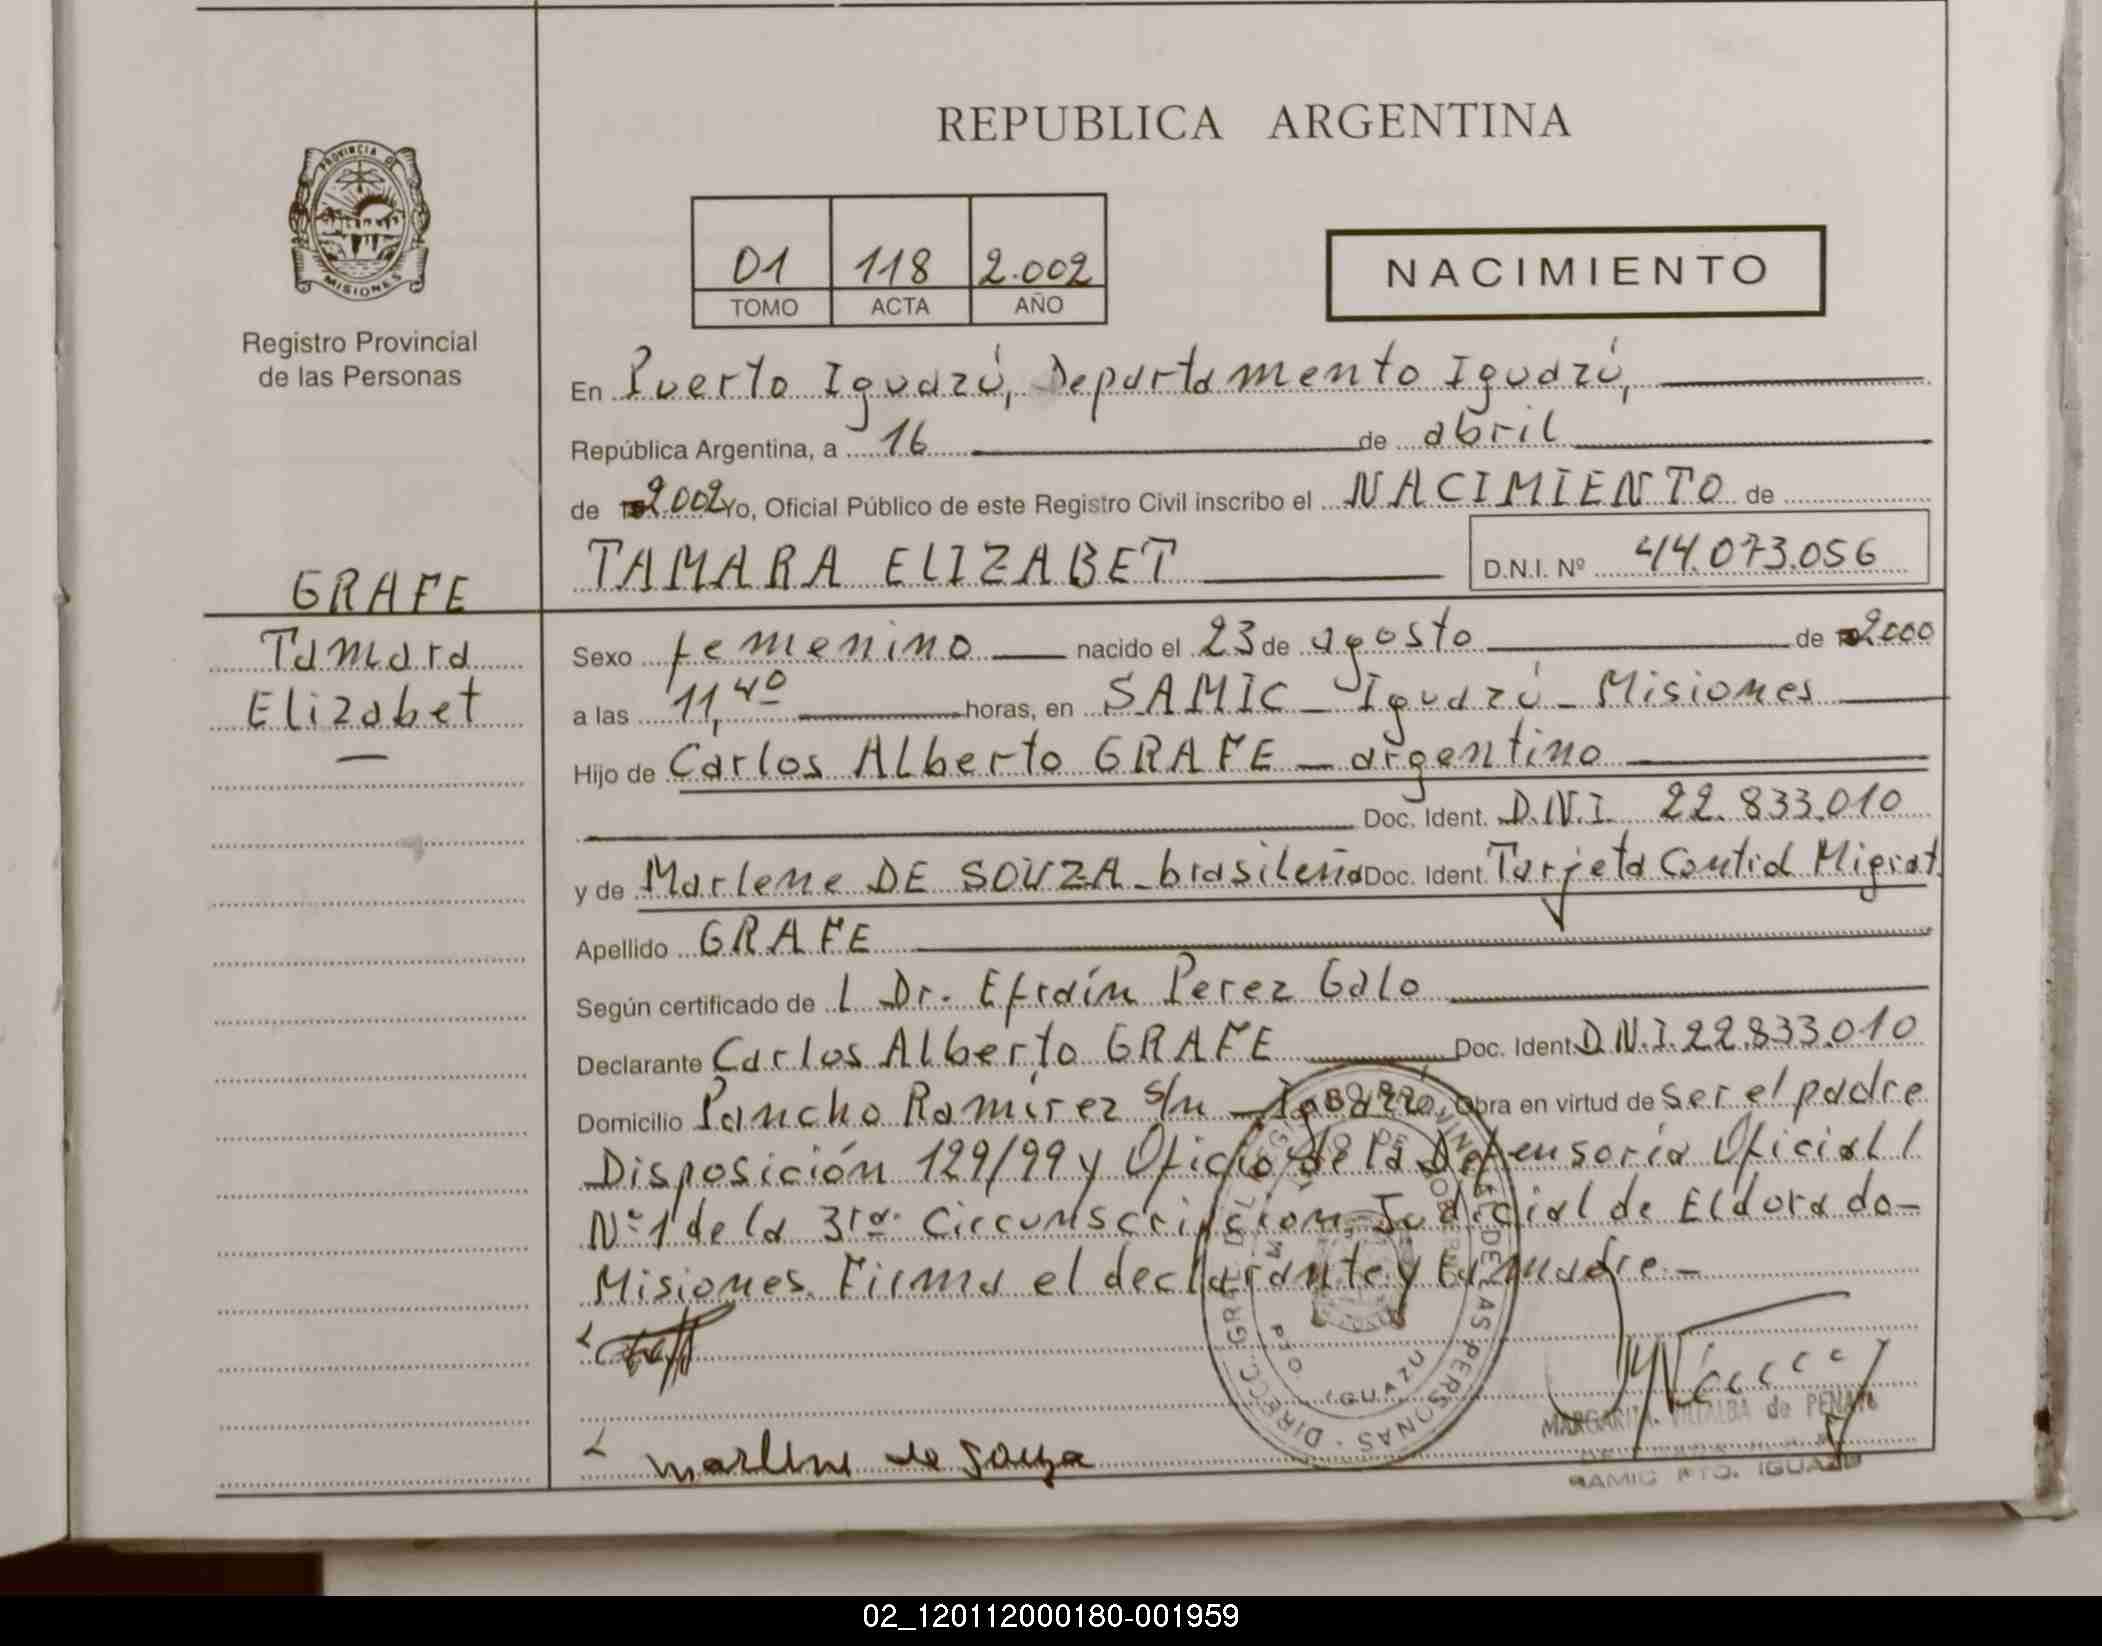 REPUBLICA ARGENTINA
PROVINCIA DE
MISIONES
Registro Provincial
de las Personas
01 118 2.002
TOMO ACTA AÑO
NACIMIENTO
En Puerto Iguazú, Departamento Iguazú,
República Argentina, a 16 de abril
de 2002 Yo, Oficial Público de este Registro Civil inscribo el NACIMIENTO de
TAMARA ELIZABET D.N.I. Nº 44.073.056
GRAFE
Tamara
Elizabet
Sexo femenino nacido el 23 de agosto de 2000
a las 11,40 horas, en SAMIC - Iguazú - Misiones
Hijo de Carlos Alberto GRAFE - argentino
Doc. Ident. D.N.I. 22.833.010
y de Marlene DE SOUZA - brasileña Doc. Ident. Tarjeta Control Migrat.
Apellido GRAFE
Según certificado de l Dr. Efraín Perez Galo
Declarante Carlos Alberto GRAFE Doc. Ident. D.N.I. 22.833.010
Domicilio Pancho Ramírez s/n - Iguazú, Obra en virtud de ser el padre
Disposición 129/99 y Oficio de la Defensoría Oficial
Nº 1 de la 3ra. Circunscripcion Judicial de Eldorado-
Misiones. Firma el declarante y la madre.-
DIRECC. GRAL. DEL DE LAS PERSONAS
IGUAZU
marlene de Souza
MARGARITA VILLALBA de
SAMIC PTO. IGUAZU
02_120112000180-001959